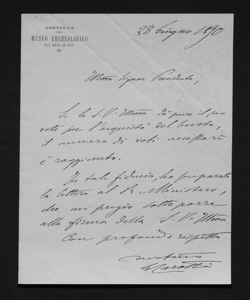 CONSULTA
DEL
MUSEO ARCHEOLOGICO
DI MILANO
28 Giugno 1890
Ill.mo Signor Presidente,
Se la S. V. Ill.ma dà pure il suo
voto per l'acquisto del busto,
il numero di voti necessari
è raggiunto.
In tale fiducia, ho preparato
la lettera al R. Ministero,
che mi pregio sottoporre
alla firma della S. V. Ill.ma
Con profondo rispetto
Carotti